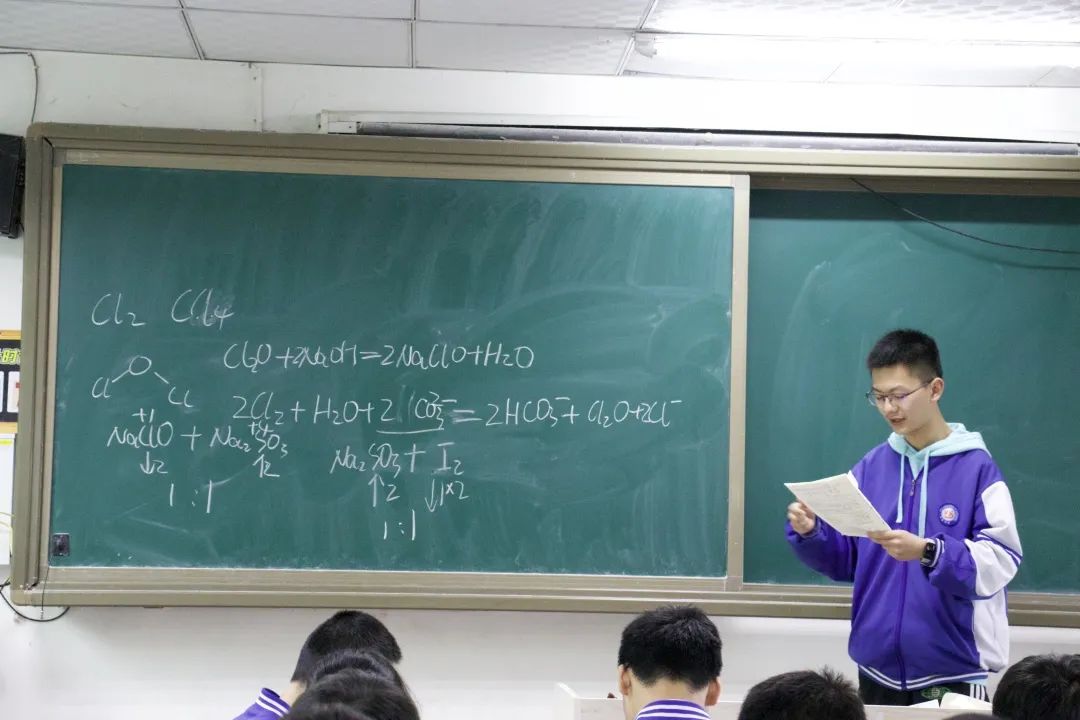 Cl₂ CCl₄
Cl₂O + 2NaOH = 2NaClO + H₂O
O
Cl Cl
2Cl₂ + H₂O + 2CO₃²⁻ = 2HCO₃⁻ + Cl₂O + 2Cl⁻
+1 +4
NaClO + Na₂SO₃
↓2 ↑2
1 : 1
Na₂SO₃ + I₂
↑2 ↓1×2
1 : 1
时